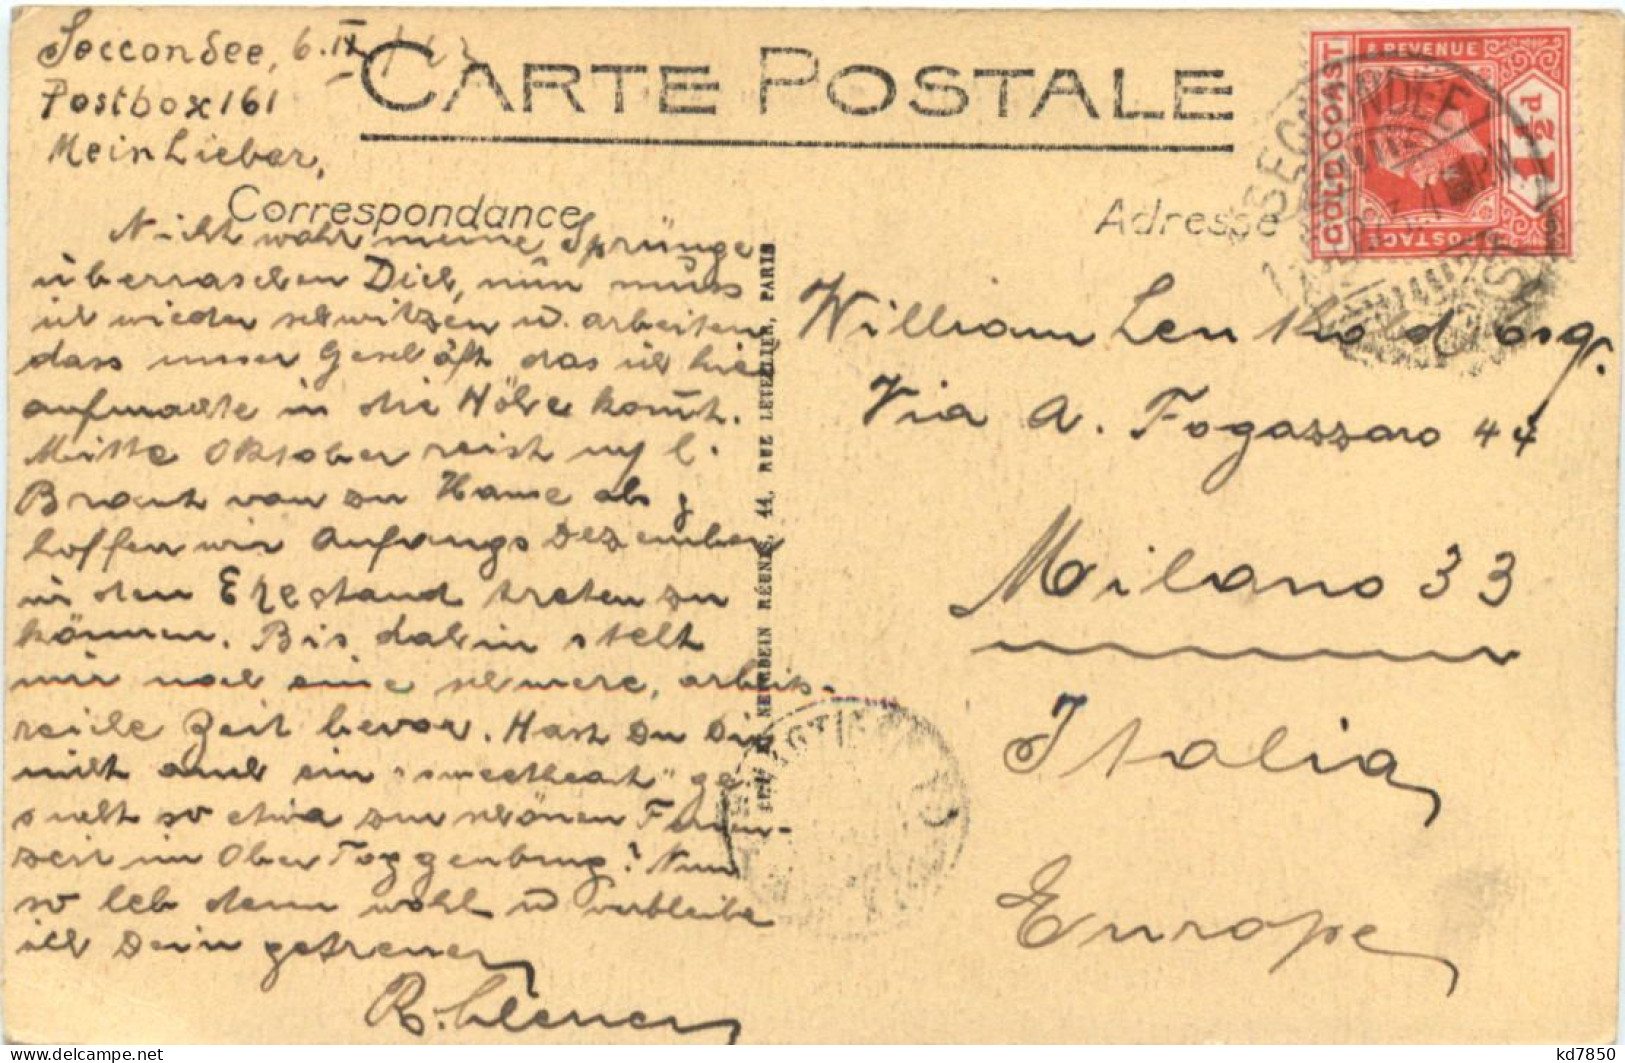 Seccondee, 6. IX
Postbox 161
Mein Lieber,
CARTE POSTALE
Correspondance
Adresse
Nicht wahr meine Sprünge
überraschen Dich, nun muss
ich wieder schwitzen u. arbeiten
dass unser Geschäft das ich hier
aufmachte in die Höhe kommt.
Mitte Oktober reist my l.
Braut von zu Hause ab &
hoffen wir Anfangs Dezember
in den Ehestand treten zu
können. Bis dahin steht
mir noch eine schwere, arbeits-
reiche Zeit bevor. Hast Du Dir
nicht auch ein "sweetheart" ge
sucht so etwa zur schönen Ferien-
zeit im Ober Toggenburg? Nun
so leb denn wohl u verbleibe
ich Dein getreuer
R.
NEURDEIN RÉUNIS, 44, RUE LETELLIER, PARIS
GOLD COAST
& REVENUE
POSTAGE
1½d
SECCONDEE
William Leuthold esq.
Via A. Fogazzaro 44
Milano 33
Italia
Europe
kd7850